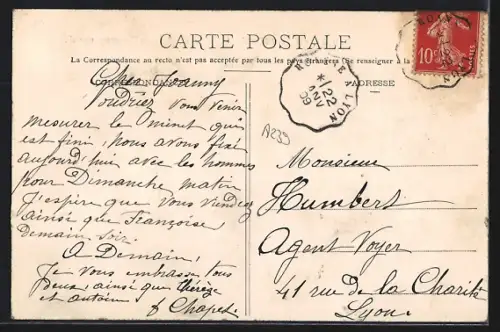 CARTE POSTALE
La Correspondance au recto n'est pas acceptée par tous les pays étrangers (Se renseigner à la
CORRESPONDANCE
ADRESSE
Cher Joanny
Voudriez vous venir
mesurer le minet qui
est fini, nous avons fixé
aujourd'hui avec les hommes
pour Dimanche matin
J'espère que vous viendrez
ainsi que Françoise
demain soir.
A Demain,
Je vous embrasse tous
deux, ainsi que thérèze
et antoine
Chapet
A LYON
22
JANV
09
10c
A235
Monsieur
Humbert
Agent Voyer
41 rue de la Charité
Lyon